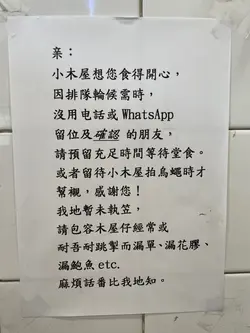 亲：
小木屋想您食得開心，
因排隊輪候需時，
沒用电話或 WhatsApp
留位及確認 的朋友，
請預留充足時間等待堂食。
或者留待小木屋拍烏蠅時才
幫襯，感谢您！
我地暫未執笠，
請包容木屋仔經常或
耐吾耐跳掣而漏單、漏花膠、
漏鮑魚 etc.
麻煩話番比我地知。